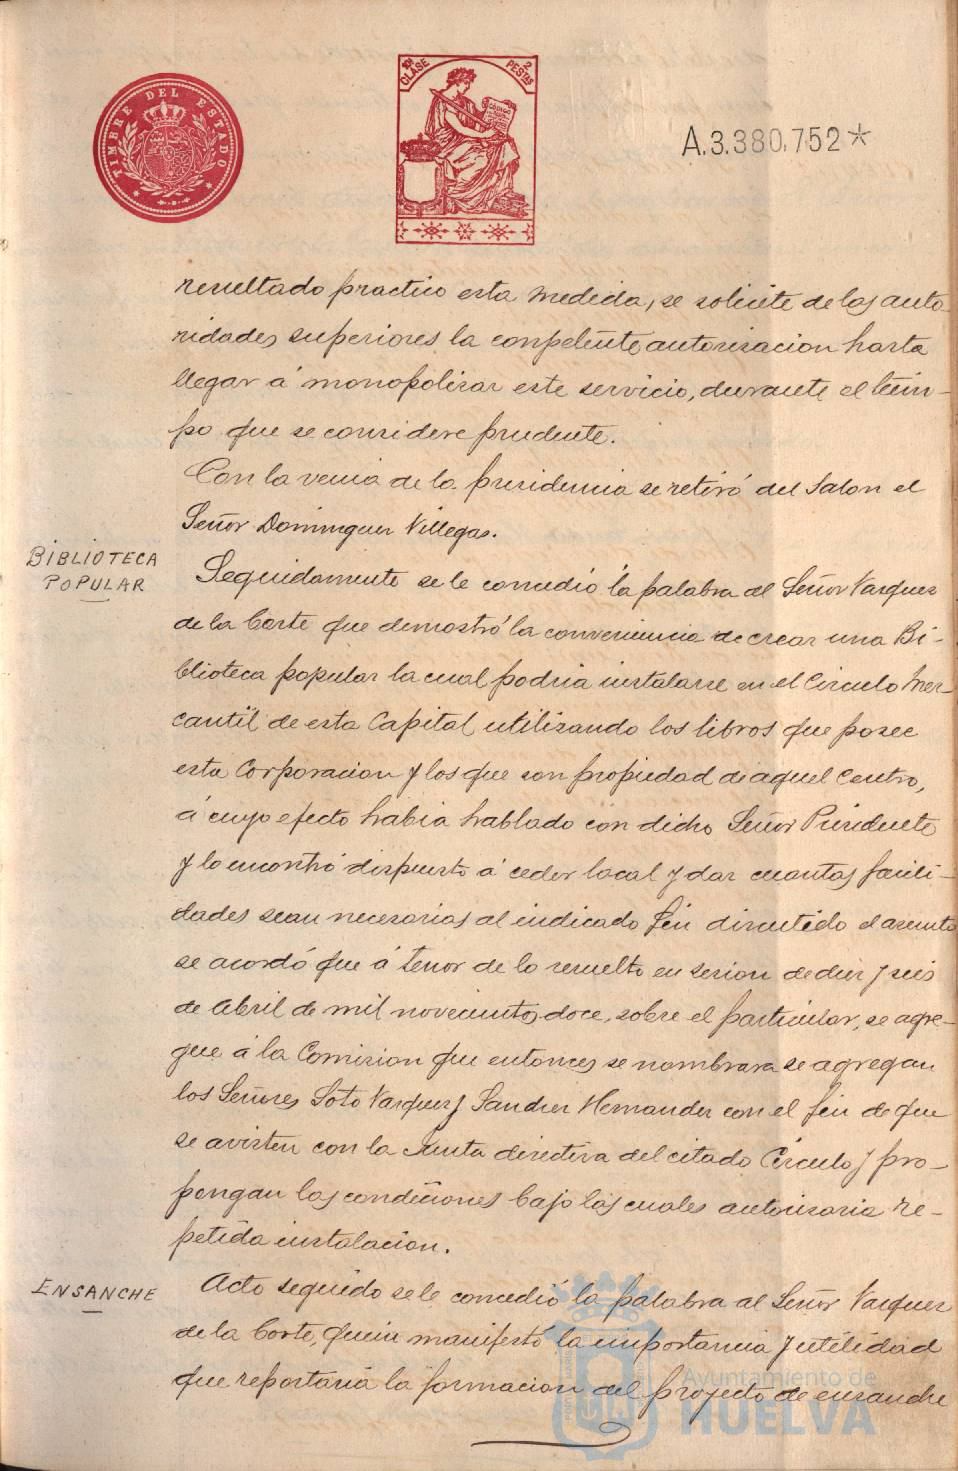 TIMBRE DEL ESTADO
10ª CLASE
2 PESTAS
CODIGO
A.3.380.752*
resultado practico esta medida, se solicite de las auto-
ridades superiores la conpetente autorisacion hasta
llegar á monopolisar este servicio, durante el tiem-
po que se considere prudente.
Con la venia de la presidencia se retiró del Salon el
Señor Dominguez Villegas.
BIBLIOTECA
POPULAR
Seguidamente se le concedió la palabra al Señor Vasques
de la Corte que demostró la conveniencia de crear una Bi-
blioteca popular la cual podria instalarse en el Circulo Mer-
cantil de esta Capital utilisando los libros que posee
esta Corporacion y los que son propiedad de aquel Centro,
á cuyo efecto habia hablado con dicho Señor Presidente
y lo encontró dispuesto á ceder local y dar cuantas facili-
dades sean necesarias al indicado fin discutido el asunto
se acordó que á tenor de lo resuelto en sesion de diez y seis
de Abril de mil novecientos doce, sobre el particular, se agre-
gue á la Comision que entonces se nombrara se agregan
los Señores Soto Vasques y Sanches Hernandes con el fin de que
se avisten con la Junta directiva del citado Circulo y pro-
pongan las condiciones bajo las cuales autorisaria re-
petida instalacion.
ENSANCHE
Acto seguido se le concedió la palabra al Señor Vasques
de la Corte, quien manifestó la importancia y utilidad
que reportaria la formacion del proyecto de ensanche
Ayuntamiento de
HUELVA